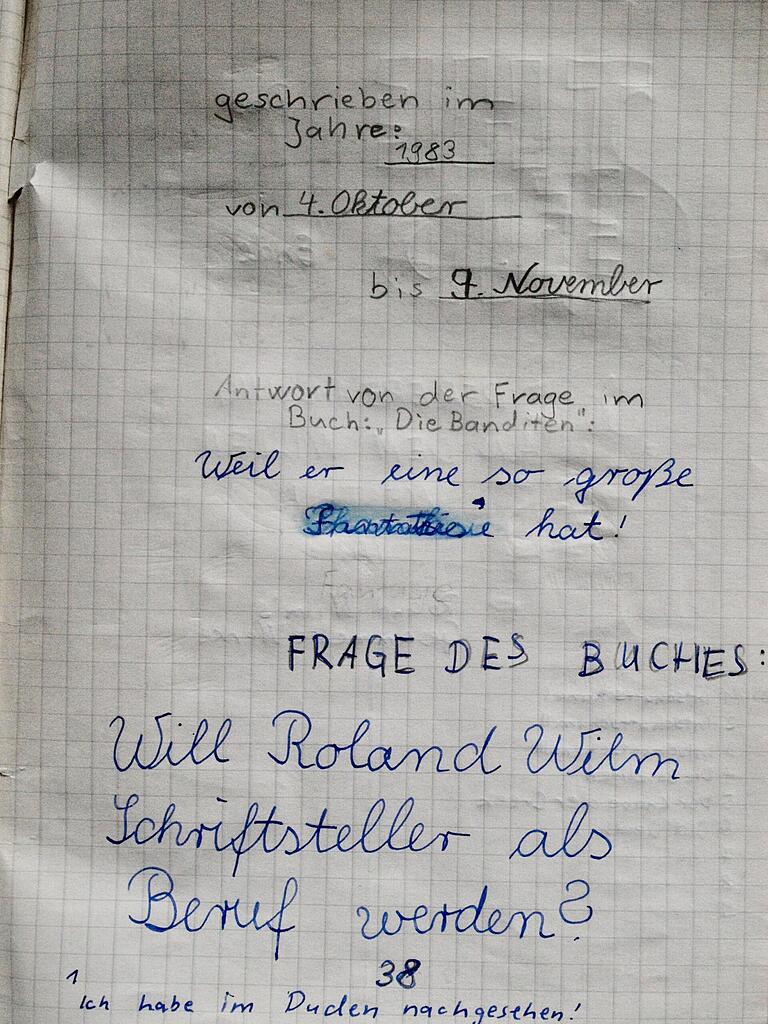 geschrieben im
Jahre:
1983
von 4. Oktober
bis 9. November
Antwort von der Frage im
Buch: „Die Banditen":
Weil er eine so große
hat!
FRAGE DES BUCHES:
Will Roland Wilm
Schriftsteller als
Beruf werden?
38
1 Ich habe im Duden nachgesehen!